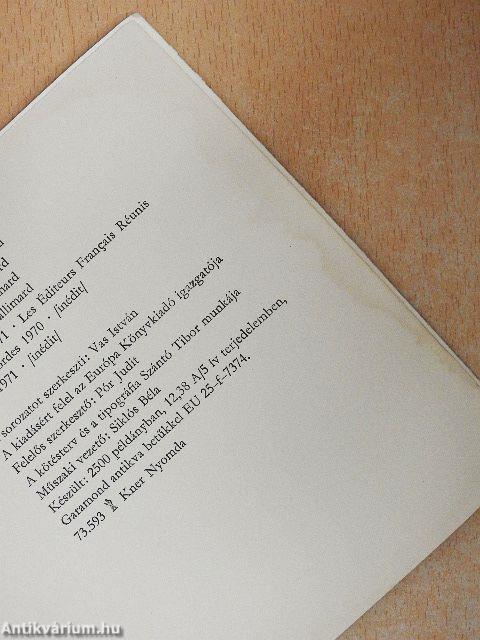 rd
mard
allimard
71 · Les Éditeurs Français Réunis
ordes 1970 · /inédit/
1971 · /inédit/
sorozatot szerkeszti: Vas István
A kiadásért felel az Európa Könyvkiadó igazgatója
Felelős szerkesztő: Pór Judit
A kötésterv és a tipográfia Szántó Tibor munkája
Műszaki vezető: Siklós Béla
Készült: 2500 példányban, 12,38 A/5 ív terjedelemben,
Garamond antikva betűkkel EU 25–f–7374.
73.593 Kner Nyomda
Antikvárium.hu